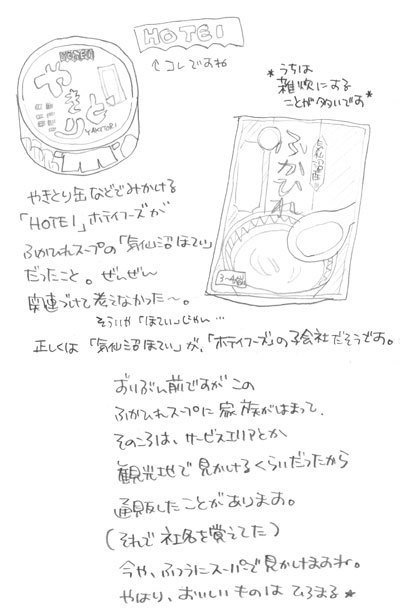 HOTEI
↑コレですね
HOTEI
やきとり
YAKITORI
*うちは
雑炊にする
ことが多いです*
気仙沼
ふかひれ
3~4人前
やきとり缶などでみかける
「HOTEI」ホテイフーズが
ふかひれスープの「気仙沼ほてい」
だったこと。ぜんぜん
関連づけて考えてなかった〜。
そういや「ほてい」じゃん…
正しくは「気仙沼ほてい」が、「ホテイフーズ」の子会社だそうです。
ずいぶん前ですがこの
ふかひれスープに家族がはまって、
そのころは、サービスエリアとか
観光地で見かけるくらいだったから
通販したことがあります。
(それで社名を覚えてた)
今や、ふつうにスーパーで見かけますね。
やはり、おいしいものはひろまる★